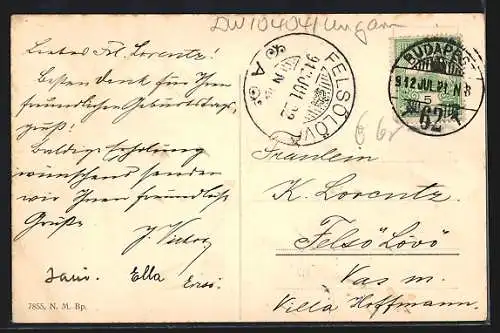 DW10404/Ungarn
Liebes Frl. Lorentz!
Besten Dank für Ihren
freundlichen Geburtstags-
gruß!
Baldige Erholung
wünschend senden
wir Ihnen freundlichste
Grüße
J. Victor
Ella Erzsi
7855, N. M. Bp.
FELSŐLŐVŐ
912 JUL 22
A
BUDAPEST
912 JUL 21 N 8
5
62
Fräulein
K. Lorentz
Felső Lövő
Vas m.
Villa Hoffmann.